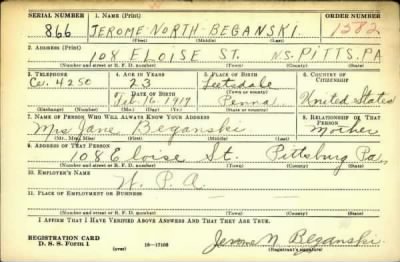 SERIAL NUMBER 1. NAME (Print) ORDER NUMBER
866 JEROME NORTH BEGANSKI 1582
(First) (Middle) (Last)
2. ADDRESS (Print)
108 ELOISE ST. N.S. PITTS. PA
(Number and street or R. F. D. number) (Town) (County) (State)
3. TELEPHONE 4. AGE IN YEARS 5. PLACE OF BIRTH 6. COUNTRY OF CITIZENSHIP
Ce. 4250 23 Leetsdale
DATE OF BIRTH (Town or county)
Feb. 16 1917 Penna United States
(Exchange) (Number) (Mo.) (Day) (Yr.) (State or country)
7. NAME OF PERSON WHO WILL ALWAYS KNOW YOUR ADDRESS 8. RELATIONSHIP OF THAT PERSON
Mrs Jane Beganski Mother
(Mr., Mrs., Miss) (First) (Middle) (Last)
9. ADDRESS OF THAT PERSON
108 Eloise St. Pittsburg Pa
(Number and street or R. F. D. number) (Town) (County) (State)
10. EMPLOYER'S NAME
W. P. A.
11. PLACE OF EMPLOYMENT OR BUSINESS
(Number and street or R. F. D. number) (Town) (County) (State)
I AFFIRM THAT I HAVE VERIFIED ABOVE ANSWERS AND THAT THEY ARE TRUE.
REGISTRATION CARD
D. S. S. Form 1 (over) 16—17105 Jerome N Beganski
(Registrant's signature)